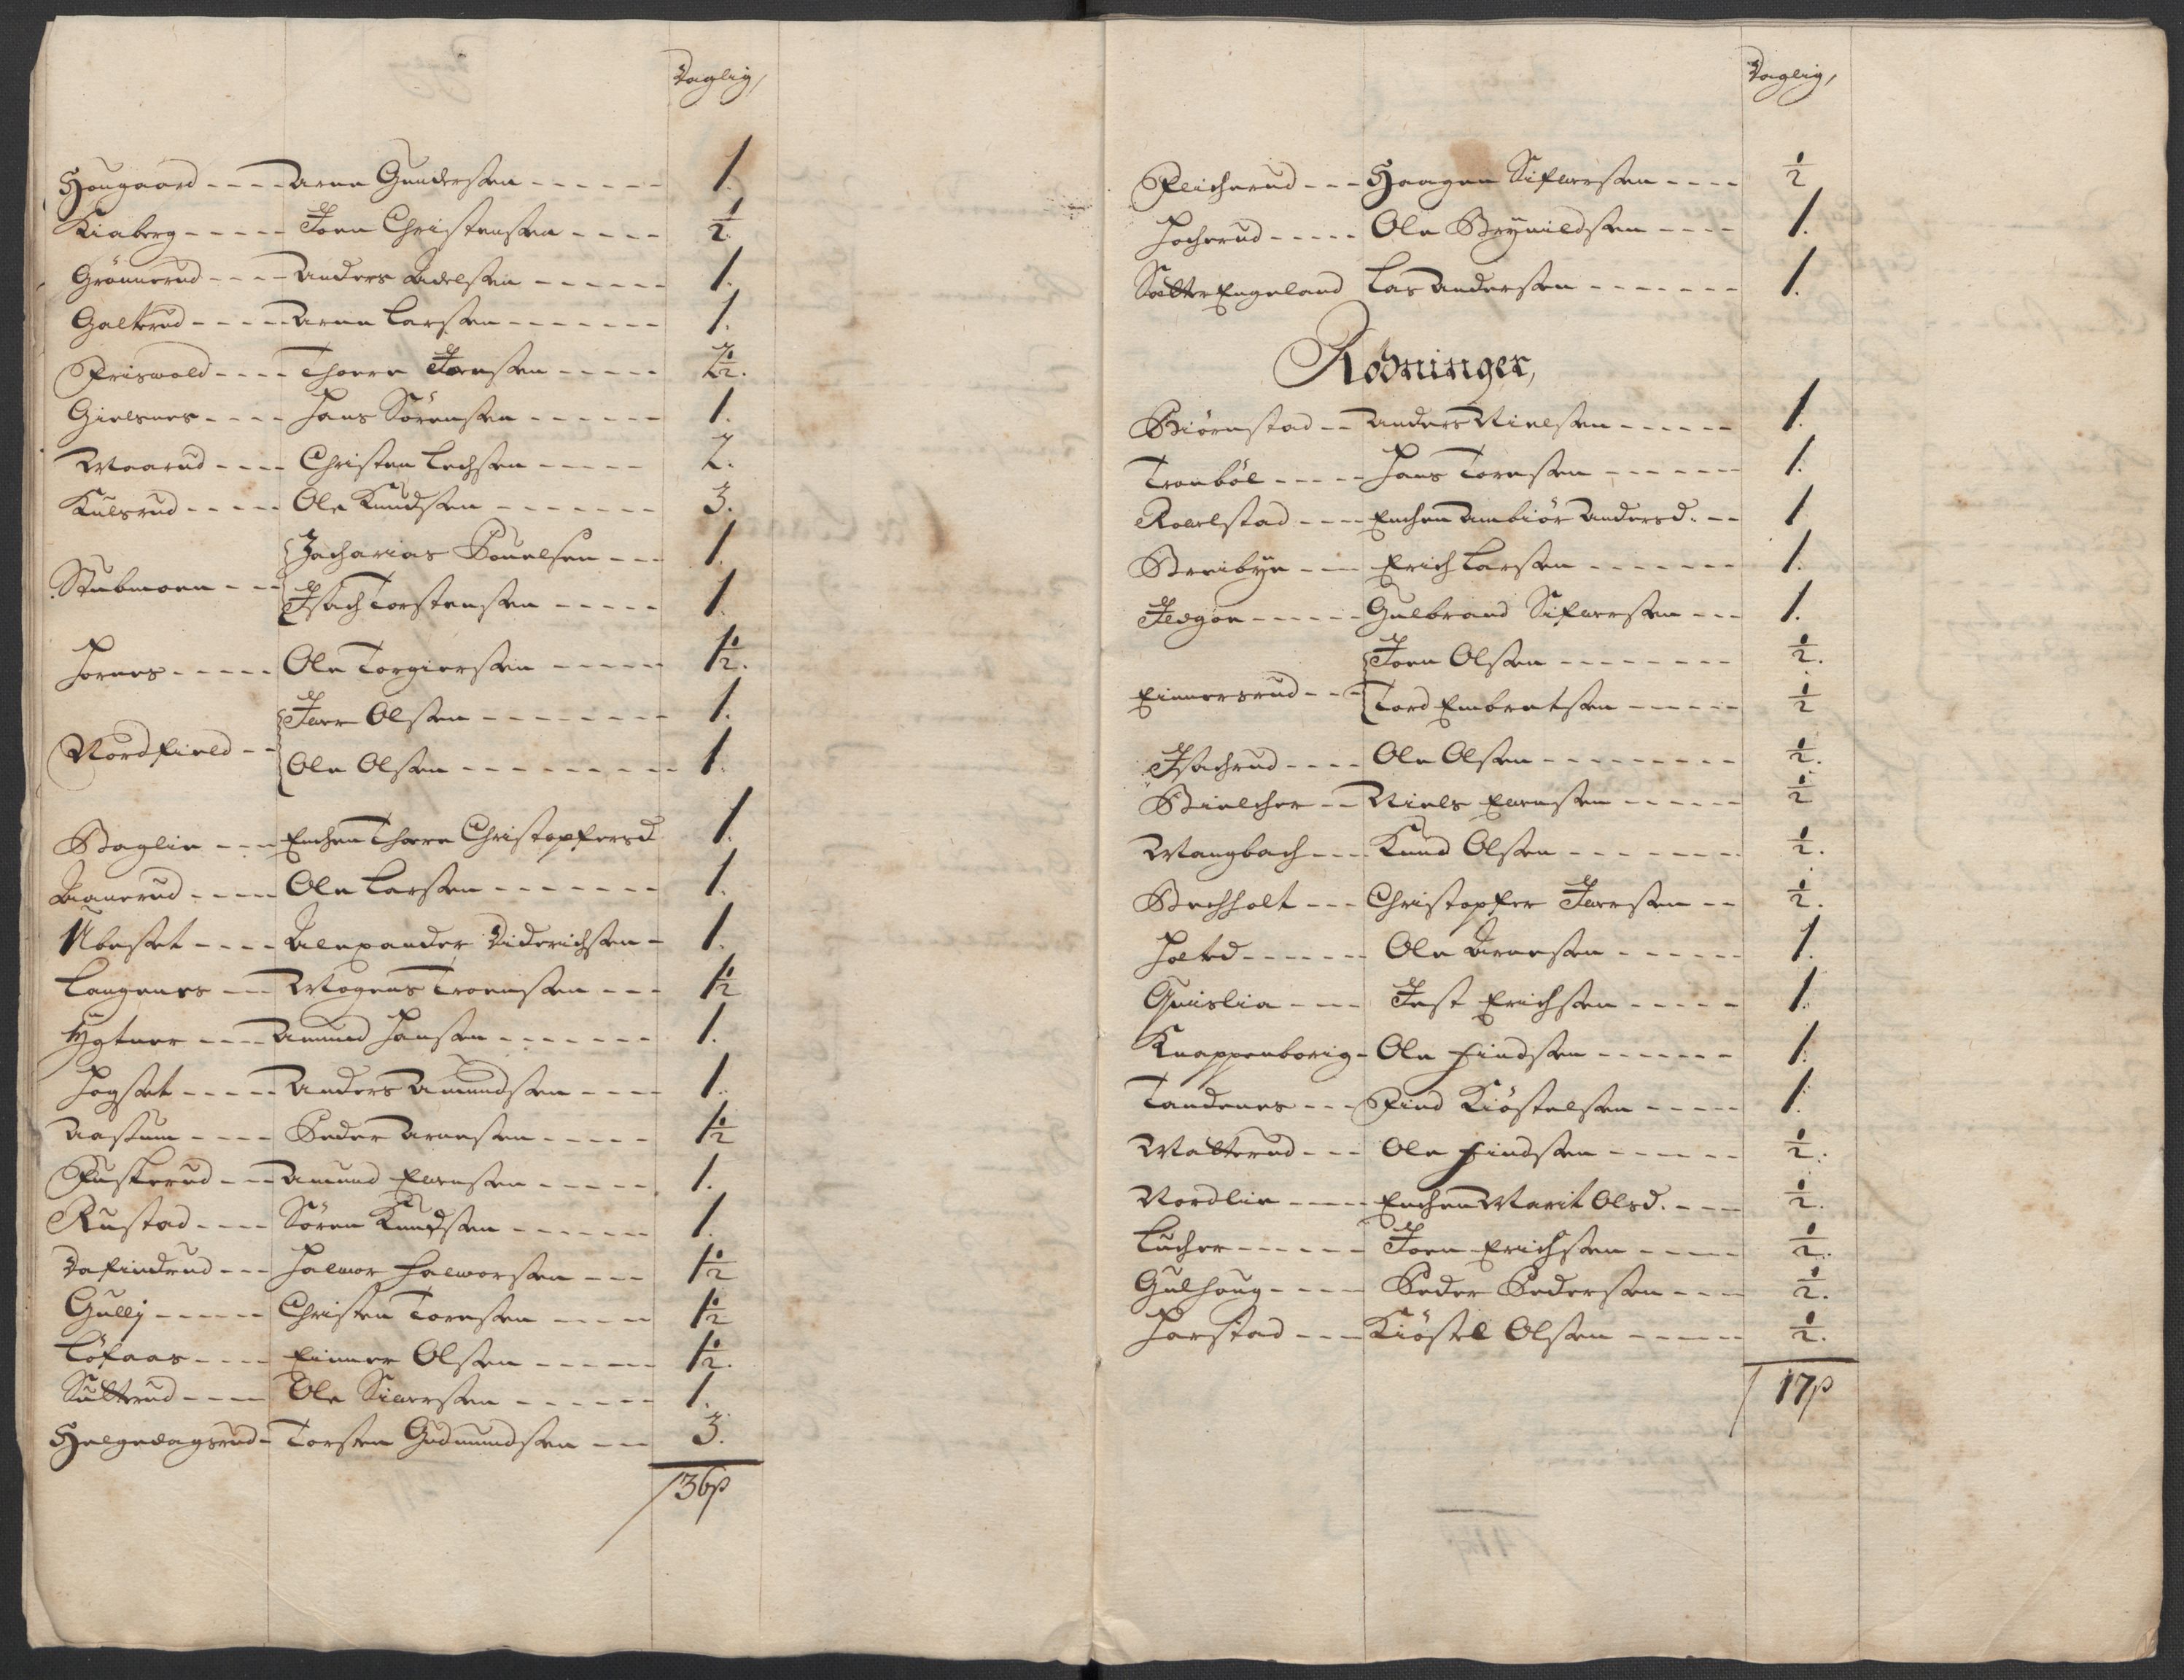 Daglig,
Hougaard - - - - Arne Gundersen - - - - - - 1.
Kiaberg - - - - - Joen Christensen - - - - 1/2.
Grönnerud - - - - Anders Adelsen - - - - - - 1.
Galterud - - - - - Arne Larsen - - - - - - - 1.
Friswold - - - - Thorre Joensen - - - - - 2 1/2.
Gielsnes - - - - Hans Sörensen - - - - - - 1.
Moarud - - - - Christen Lechsen - - - - - 2.
Kulsrud - - - - - Ole Knudsen - - - - - - - 3.
Zacharias Pouelsen - - - 1.
Stubmoen - - -
Isach Torstensen - - - - - 1.
Hornes - - - - - Ole Torgiersen - - - - - 1 1/2.
Iver Olsen - - - - - - - 1.
Nordfield - -
Ole Olsen - - - - - - - - - 1.
Baglie - - - Enchen Thorre Christopfersd 1.
Aanerud - - - - Ole Larsen - - - - - - - 1.
Ulleset - - - - Alexander Diderichsen - 1.
Langenes - - - Mogens Troensen - - - 1 1/2
Ygtner - - - - Amund Hansen - - - - - - - 1.
Hogset - - - - - Anders Amundsen - - - - 1.
Aastum - - - - Peder Arnesen - - - - - 1 1/2
Fuskerud - - - Amund Evensen - - - - - 1.
Rustad - - - - Sören Knudsen - - - - - - 1.
Dafindrud - - - Halvor Halvorsen - - - 1 1/2
Gullj - - - - - Christen Toresen - - - - 1 1/2
Löfaas - - - - Einner Olsen - - - - - 1 1/2.
Sulterud - - - - Ole Siversen - - - - - - 1.
Helgedagsrud - Torsten Gudmundsen - - - 3.
36ß
Daglig,
Fleicherud - - - Haagen Sifversen - - - - 1/2
Hocherud - - - - - Ole Brynildsen - - - - 1.
Sætter Engeland Lars Andersen - - - - - - - 1.
Rödninger,
Biörnstad - - Anders Nielsen - - - - - - 1.
Tronböl - - - - - Hans Toresen - - - - - - 1.
Roelstad - - - - Enchen Ambiör Andersd. - - 1
Breibye - - - - Erich Larsen - - - - - - - 1.
Ildgön - - - - - Gulbrand Sifversen - - - 1.
Joen Olsen - - - - - - - - 1/2.
Einnersrud - - -
Tord Embretsen - - - - - 1/2
Isachrud - - - - Ole Olsen - - - - - - - - - 1/2.
Bielcher - - Niels Evensen - - - - - 1/2
Mangbach - - - Knud Olsen - - - - - - - 1/2.
Brechholt - - - Christopfer Iversen - - 1/2.
Holtd - - - - - - - Ole Arnesen - - - - - - 1.
Quislia - - - - Jest Erichsen - - - - - 1.
Knappenborig - Ole Findsen - - - - - - 1.
Tandenes - - - Find Kiöstelsen - - - - - 1.
Walterud - - - Ole Findsen - - - - - - 1/2.
Nordlie - - - - Enchen Marit Olsd. - - - 1/2.
Lucher - - - - - - Joen Erichsen - - - - 1/2.
Gulhoug - - - - Peder Pedersen - - - 1/2.
Harstad - - - Kiöstel Olsen - - - - - 1/2.
17ß